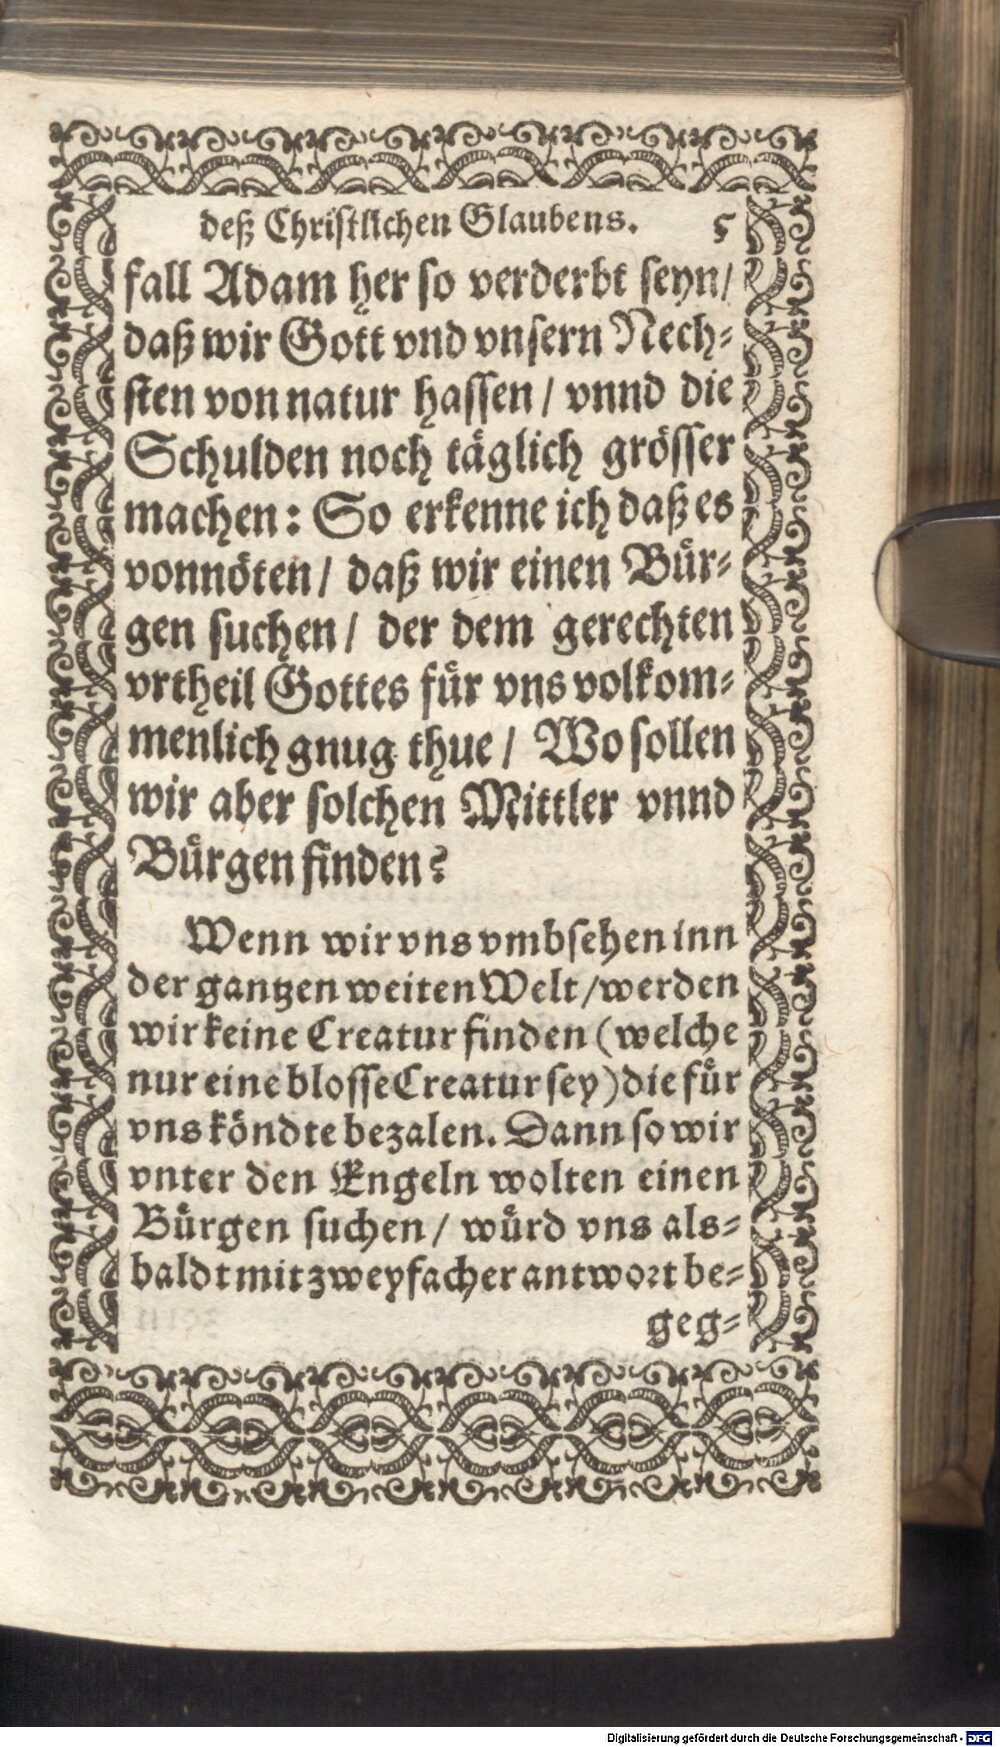 deß Christlichen Glaubens. 5
fall Adam her so verderbt seyn/
daß wir Gott vnd vnsern Nech-
sten von natur hassen / vnnd die
Schulden noch täglich grösser
machen: So erkenne ich daß es
vonnöten / daß wir einen Bür-
gen suchen / der dem gerechten
vrtheil Gottes für vns volkom-
menlich gnug thue / Wo sollen
wir aber solchen Mittler vnnd
Bürgen finden?
Wenn wir vns vmbsehen inn
der gantzen weiten Welt / werden
wir keine Creatur finden (welche
nur eine blosse Creatur sey) die für
vns köndte bezalen. Dann so wir
vnter den Engeln wolten einen
Bürgen suchen / würd vns als-
baldt mit zweyfacher antwort be-
geg-
Digitalisierung gefördert durch die Deutsche Forschungsgemeinschaft - DFG